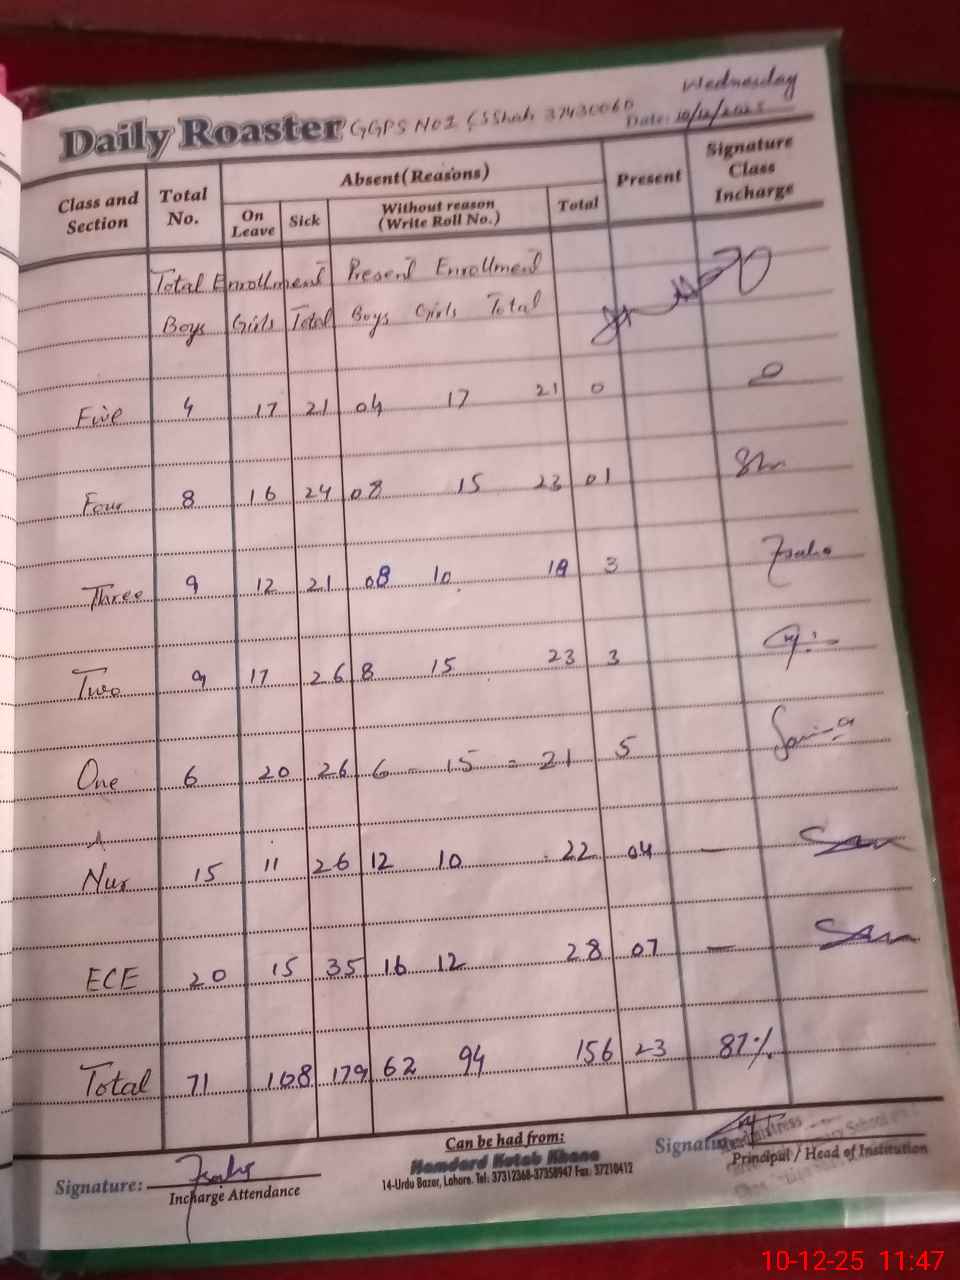 Wednesday
Daily Roaster GGPS No1 37430060 Date: 10/12/2025
Class and Section Total No. Absent (Reasons) Present Signature Class Incharge
On Leave Sick Without reason (Write Roll No.) Total
Total Enrollment Present Enrollment
Boys Girls Total Boys Girls Total
Five 4 17 21 04 17 21 0
Four 8 16 24 08 15 23 01
Three 9 12 21 08 10 18 3
Two 9 17 26 8 15 23 3
One 6 20 26 6 - 15 = 21 5
Nur 15 11 26 12 10 22 04 —
ECE 20 15 35 16 12 28 07 —
Total 71 108 179 62 94 156 23 87%
Can be had from:
Hamdard Kutab Khana
14-Urdu Bazar, Lahore. Tel: 37312368-37358947 Fax: 37210412
Signature: Incharge Attendance
Signature: Principal / Head of Institution
10-12-25 11:47